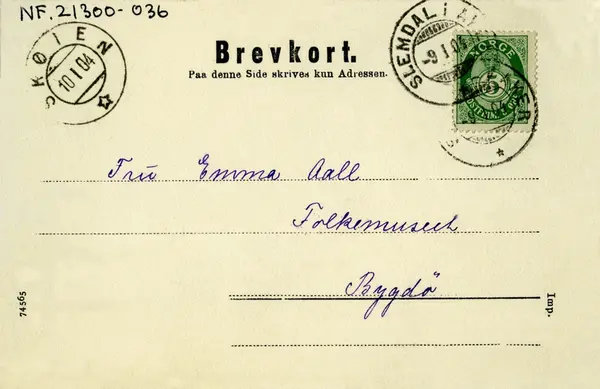 NF.21300-036
SKØIEN
10 I 04
Brevkort.
Paa denne Side skrives kun Adressen.
SLEMDAL I A
-9.I.04
NORGE
5
Fru Emma Aall
Folkemuseet
Bygdö
74565
Imp.